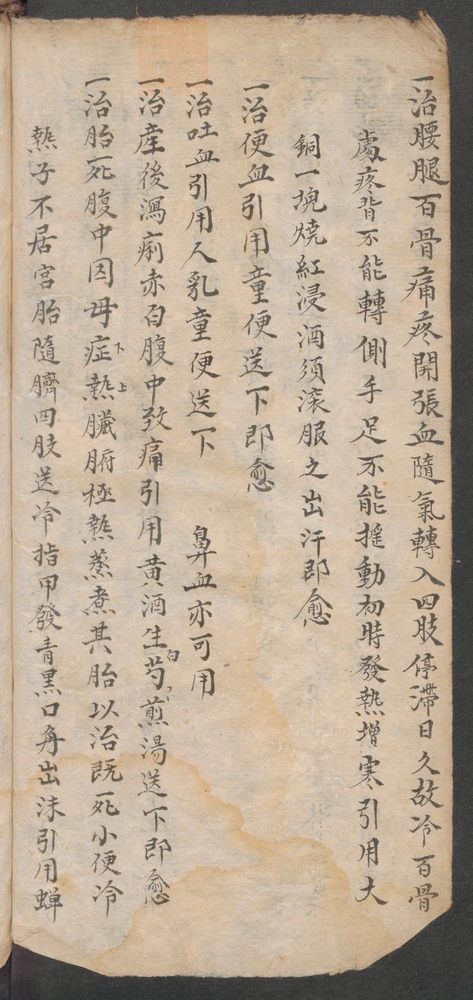 一治腰腿百骨痛疼開張血隨氣轉入四肢停滯日久故冷百骨
處疼背不能轉側手足不能摇動初時發熱增寒引用大
銅一塊燒紅浸酒須滚服之出汗即愈
一治便血引用童便送下即愈
一治吐血引用人乳童便送下 鼻血亦可用
一治産後瀉痢赤白腹中致痛引用黄酒生白芍煎湯送下即愈
一治胎死腹中因母症下熱上臟腑極熱蒸煮其胎以治既死小便冷
熱子不居宮胎隨臍四肢送冷指甲發青黑口舟出沫引用蝉